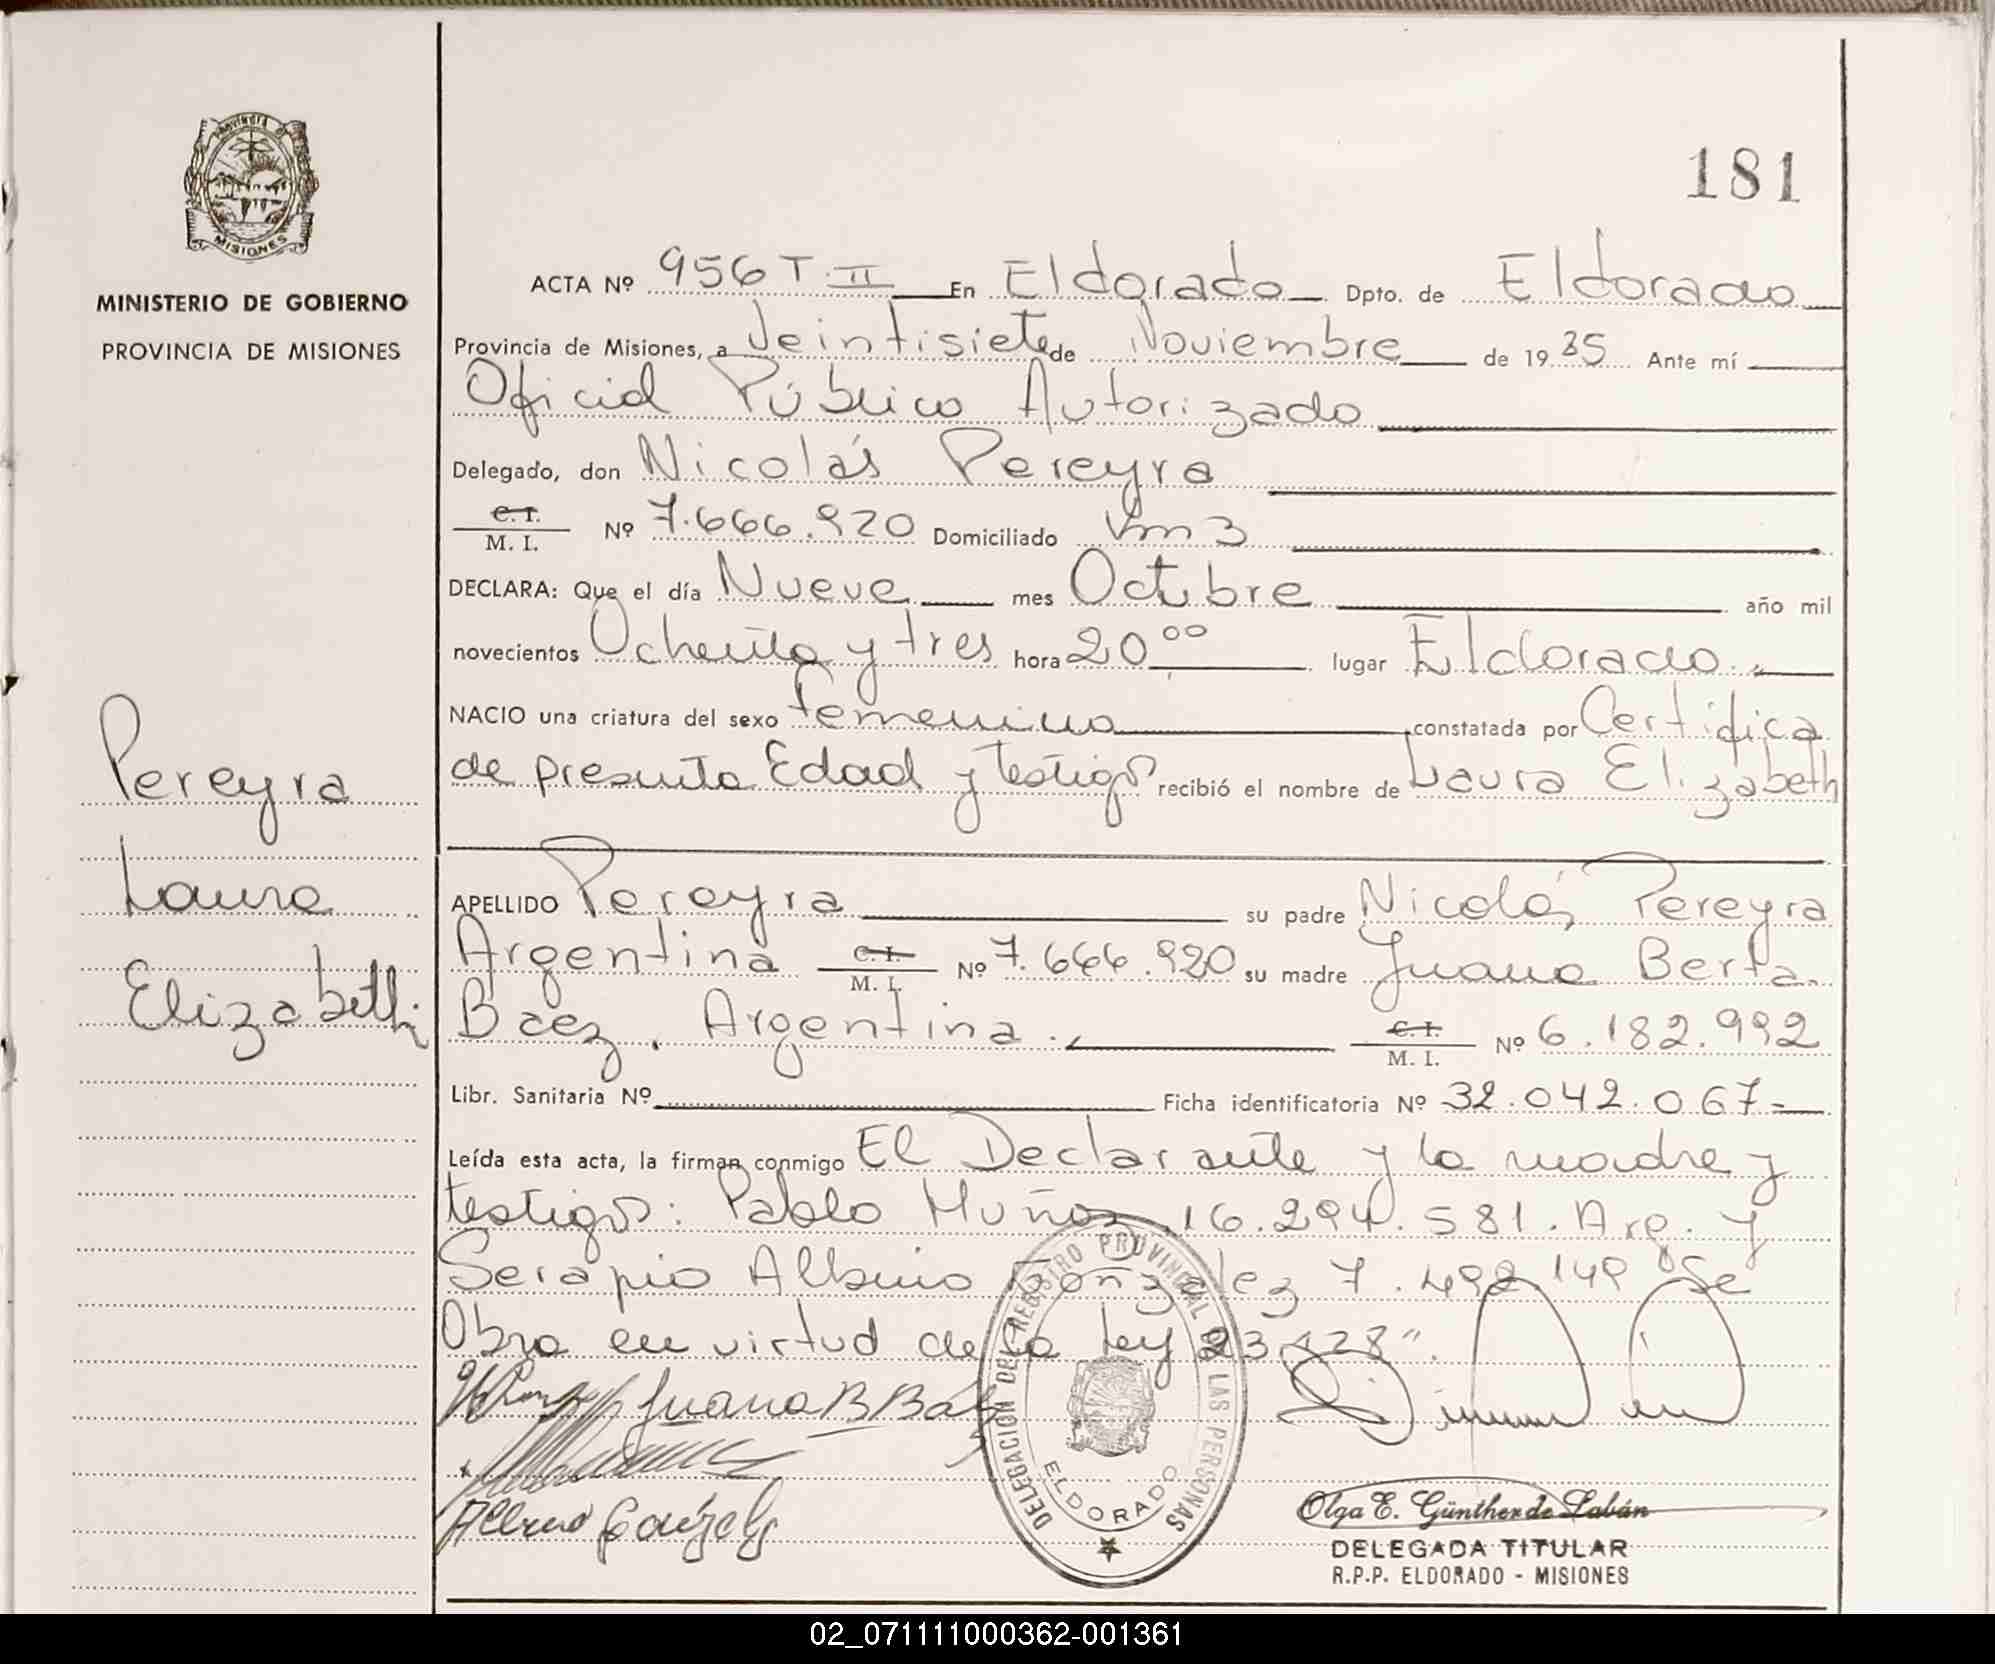 181
Provincia de
MISIONES
MINISTERIO DE GOBIERNO
PROVINCIA DE MISIONES
Pereyra
Laura
Elizabeth
ACTA Nº 956 T. II En Eldorado Dpto. de Eldorado
Provincia de Misiones, a Veintisiete de Noviembre de 19 85 Ante mí
Oficial Público Autorizado
Delegado, don Nicolás Pereyra
C. I.
M. I. Nº 7.666.920 Domiciliado Km 3
DECLARA: Que el día Nueve mes Octubre año mil
novecientos Ochenta y tres hora 20 00 lugar Eldorado
NACIO una criatura del sexo femenino constatada por Certifica
de presunta Edad y testigos recibió el nombre de Laura Elizabeth
APELLIDO Pereyra su padre Nicolás Pereyra
Argentina C. I. M. I. Nº 7.666.920 su madre Juana Berta
Baez. Argentina. C. I. M. I. Nº 6.182.992
Libr. Sanitaria Nº Ficha identificatoria Nº 32.042.067-
Leída esta acta, la firman conmigo El Declarante y la madre y
testigos: Pablo Muñoz 16.294.581. Arg. y
Serapio Albino González 7.492.149 "Se
Obra en virtud de la ley 23.128".
Juana B Báez
Albino González
DELEGACION DEL REGISTRO PROVINCIAL DE LAS PERSONAS
ELDORADO
Olga E. Günther de Labán
DELEGADA TITULAR
R.P.P. ELDORADO - MISIONES
02_071111000362-001361